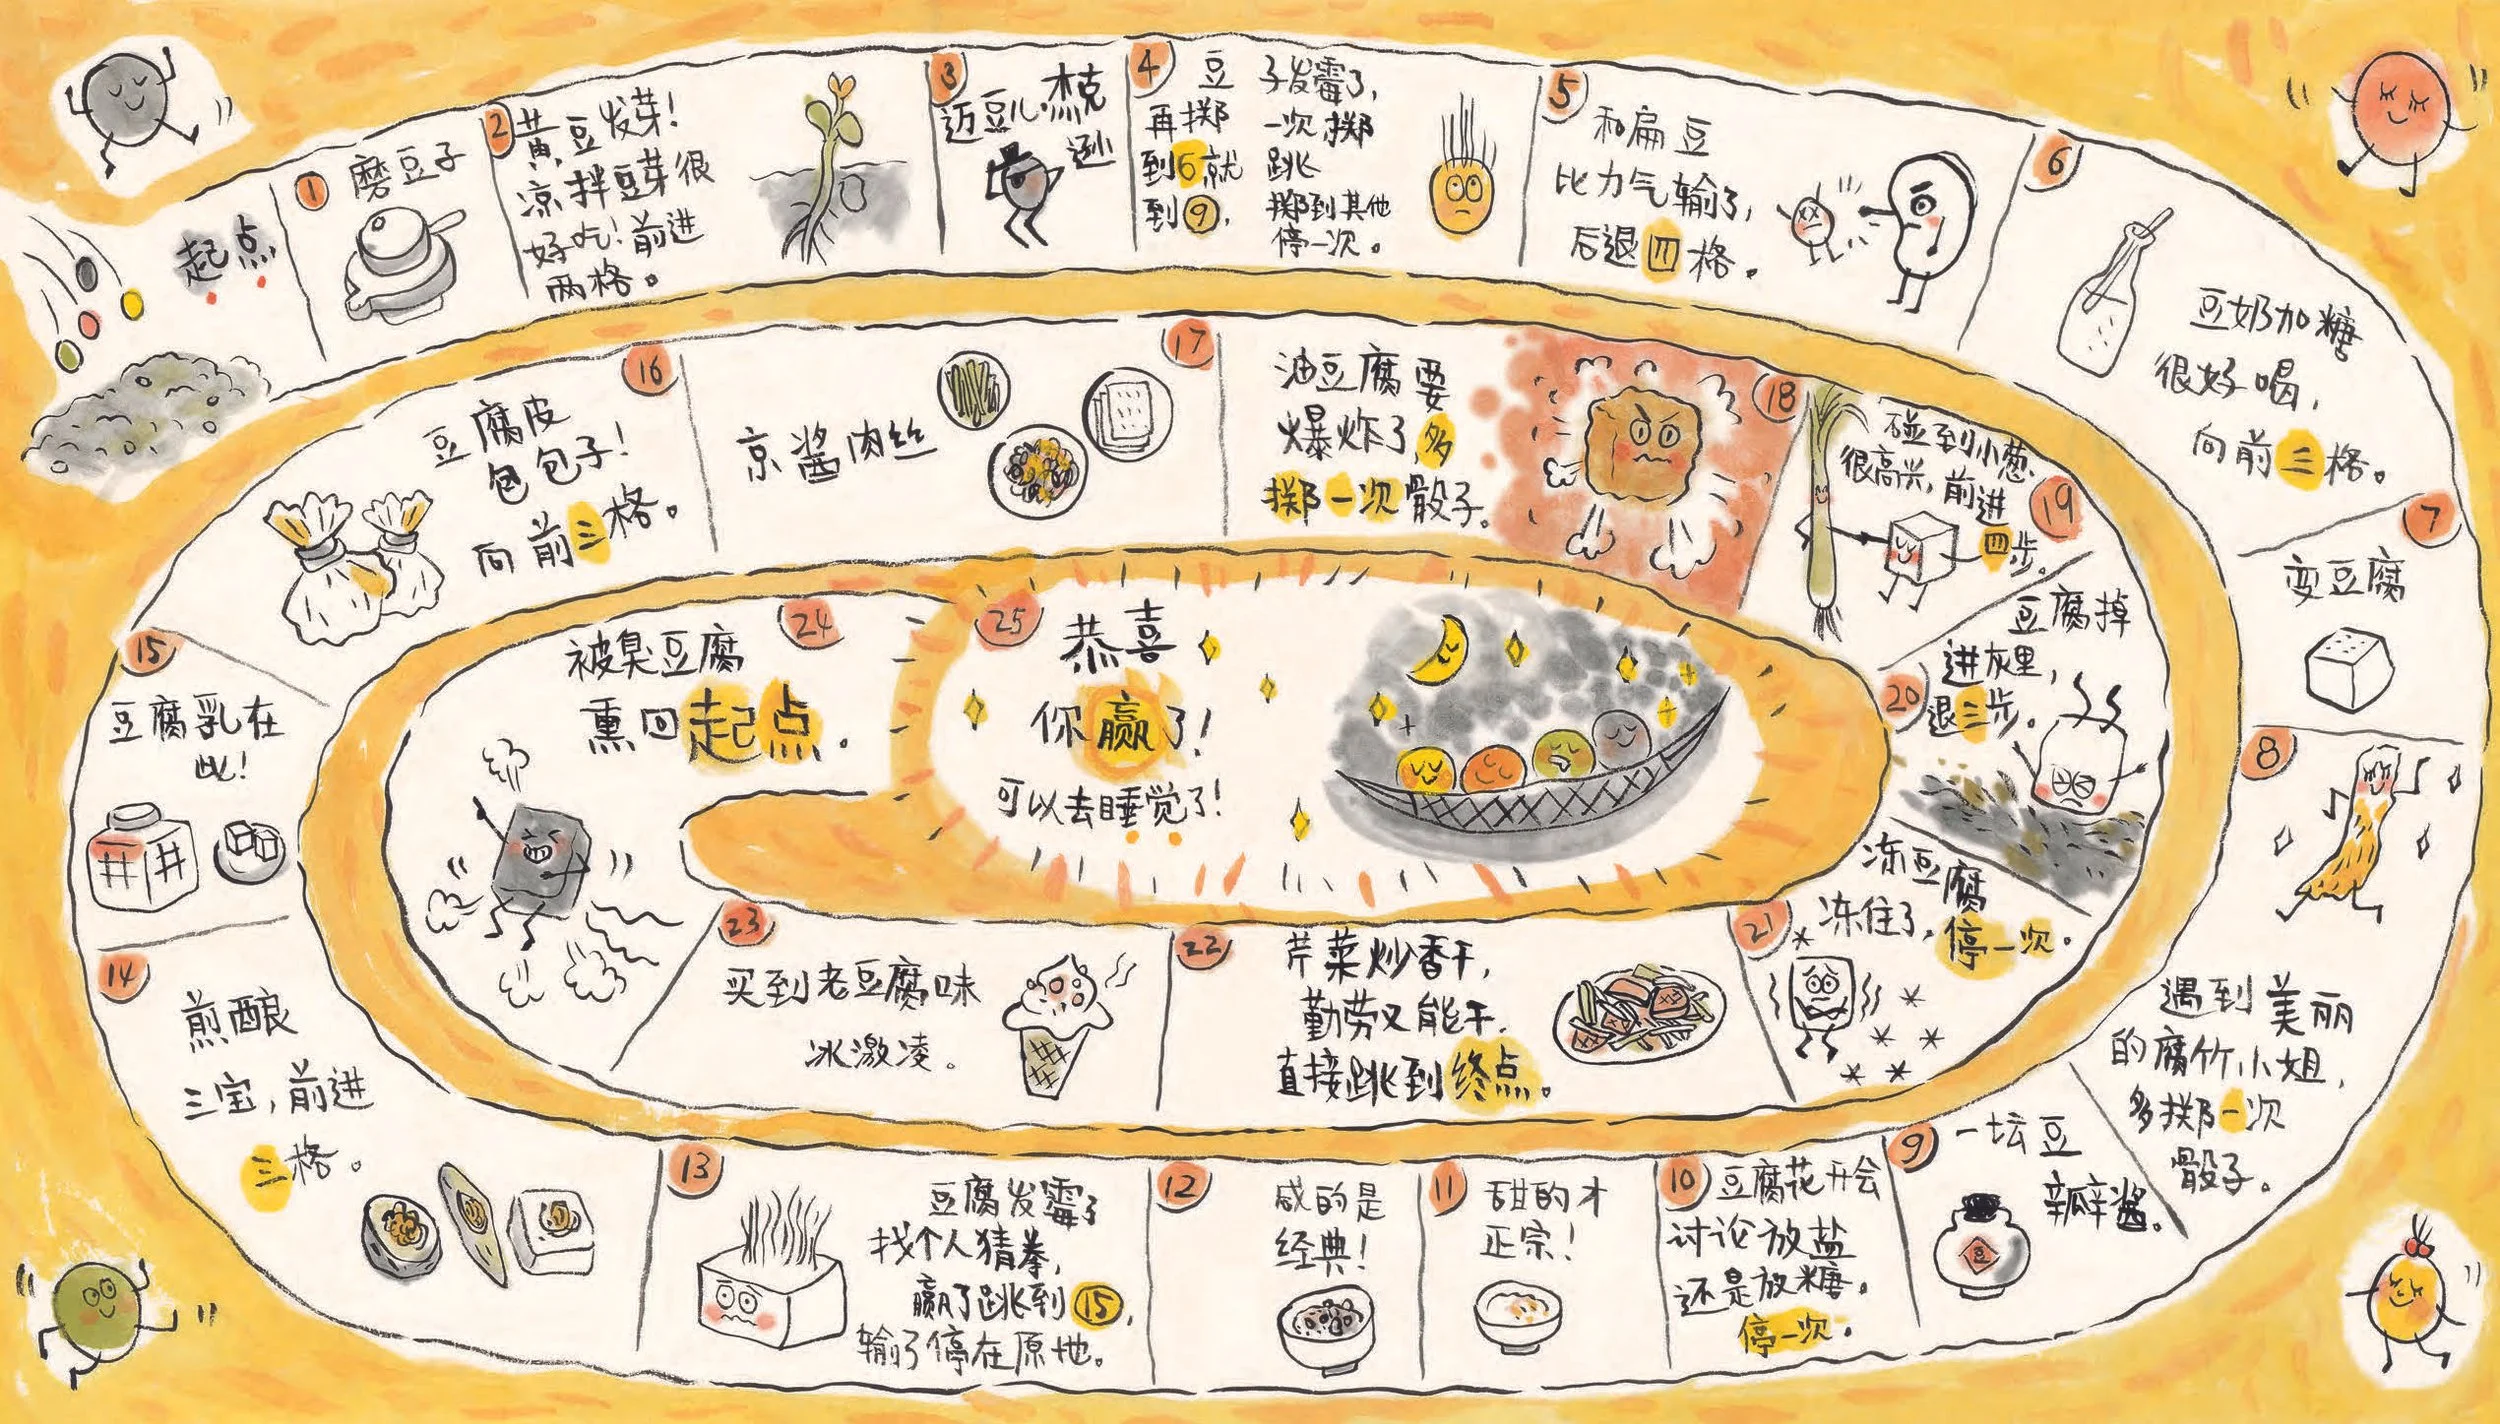 起点
1
磨豆子
2
黄豆发芽！
凉拌豆芽很
好吃！前进
两格。
3
迈豆儿·杰克
逊
4
豆子发霉了，
再掷一次，掷
到6就跳
到⑨，掷到其他
停一次。
5
和扁豆
比力气输了，
后退四格。
6
豆奶加糖
很好喝，
向前三格。
7
变豆腐
8
遇到美丽
的腐竹小姐，
多掷一次
骰子。
9
一坛豆
瓣酱。
豆
10
豆腐花开会
讨论放盐
还是放糖。
停一次。
11
甜的才
正宗！
12
咸的是
经典！
13
豆腐发霉了
找个人猜拳，
赢了跳到⑮，
输了停在原地。
14
煎酿
三宝，前进
三格。
15
豆腐乳在
此！
16
豆腐皮
包包子！
向前三格。
17
京酱肉丝
18
油豆腐要
爆炸了，多
掷一次骰子。
19
碰到小葱，
很高兴，前进
四步。
20
豆腐掉
进灰里，
退三步。
21
冻豆腐
冻住了，停一次。
22
芹菜炒香干，
勤劳又能干，
直接跳到终点。
23
买到老豆腐味
冰激凌。
24
被臭豆腐
熏回起点。
25
恭喜
你赢了！
可以去睡觉了！